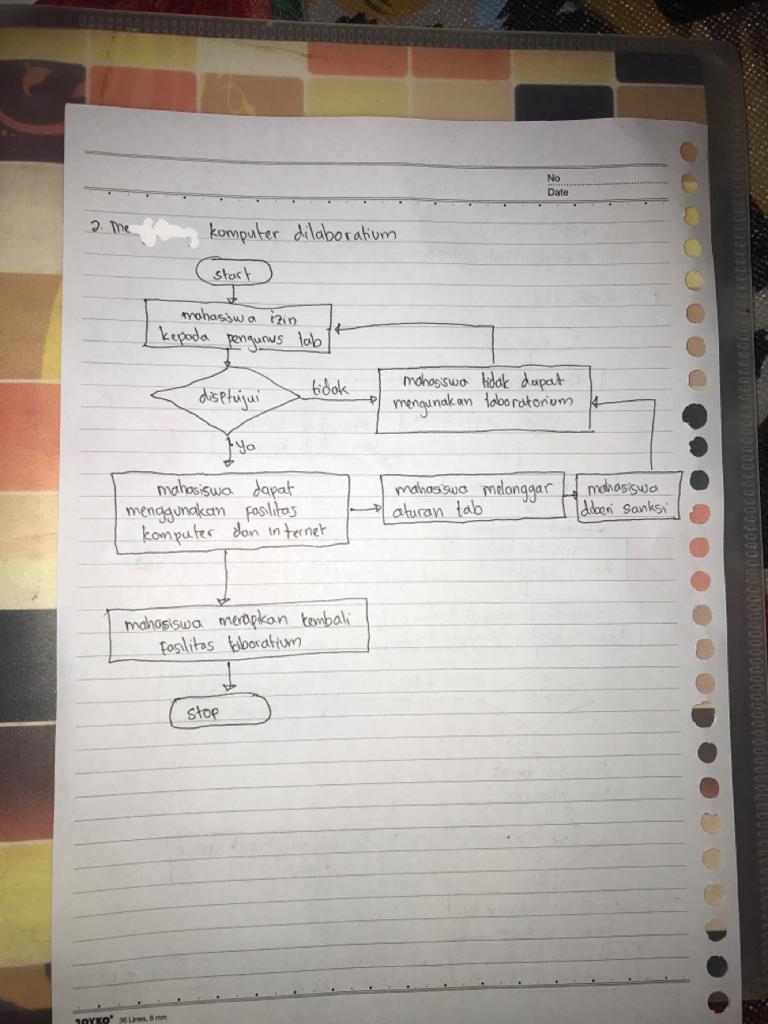 No
Date
2. Me komputer dilaboratium
start
mahasiswa izin
kepada pengurus lab
disetujui
tidak
mahasiswa tidak dapat
mengunakan laboratorium
Ya
mahasiswa dapat
menggunakan fasilitas
komputer dan internet
mahasiswa melanggar
aturan lab
mahasiswa
diberi sanksi
mahasiswa merapkan kembali
fasilitas laboratium
stop
JOYKO® 36 Lines, 6 mm